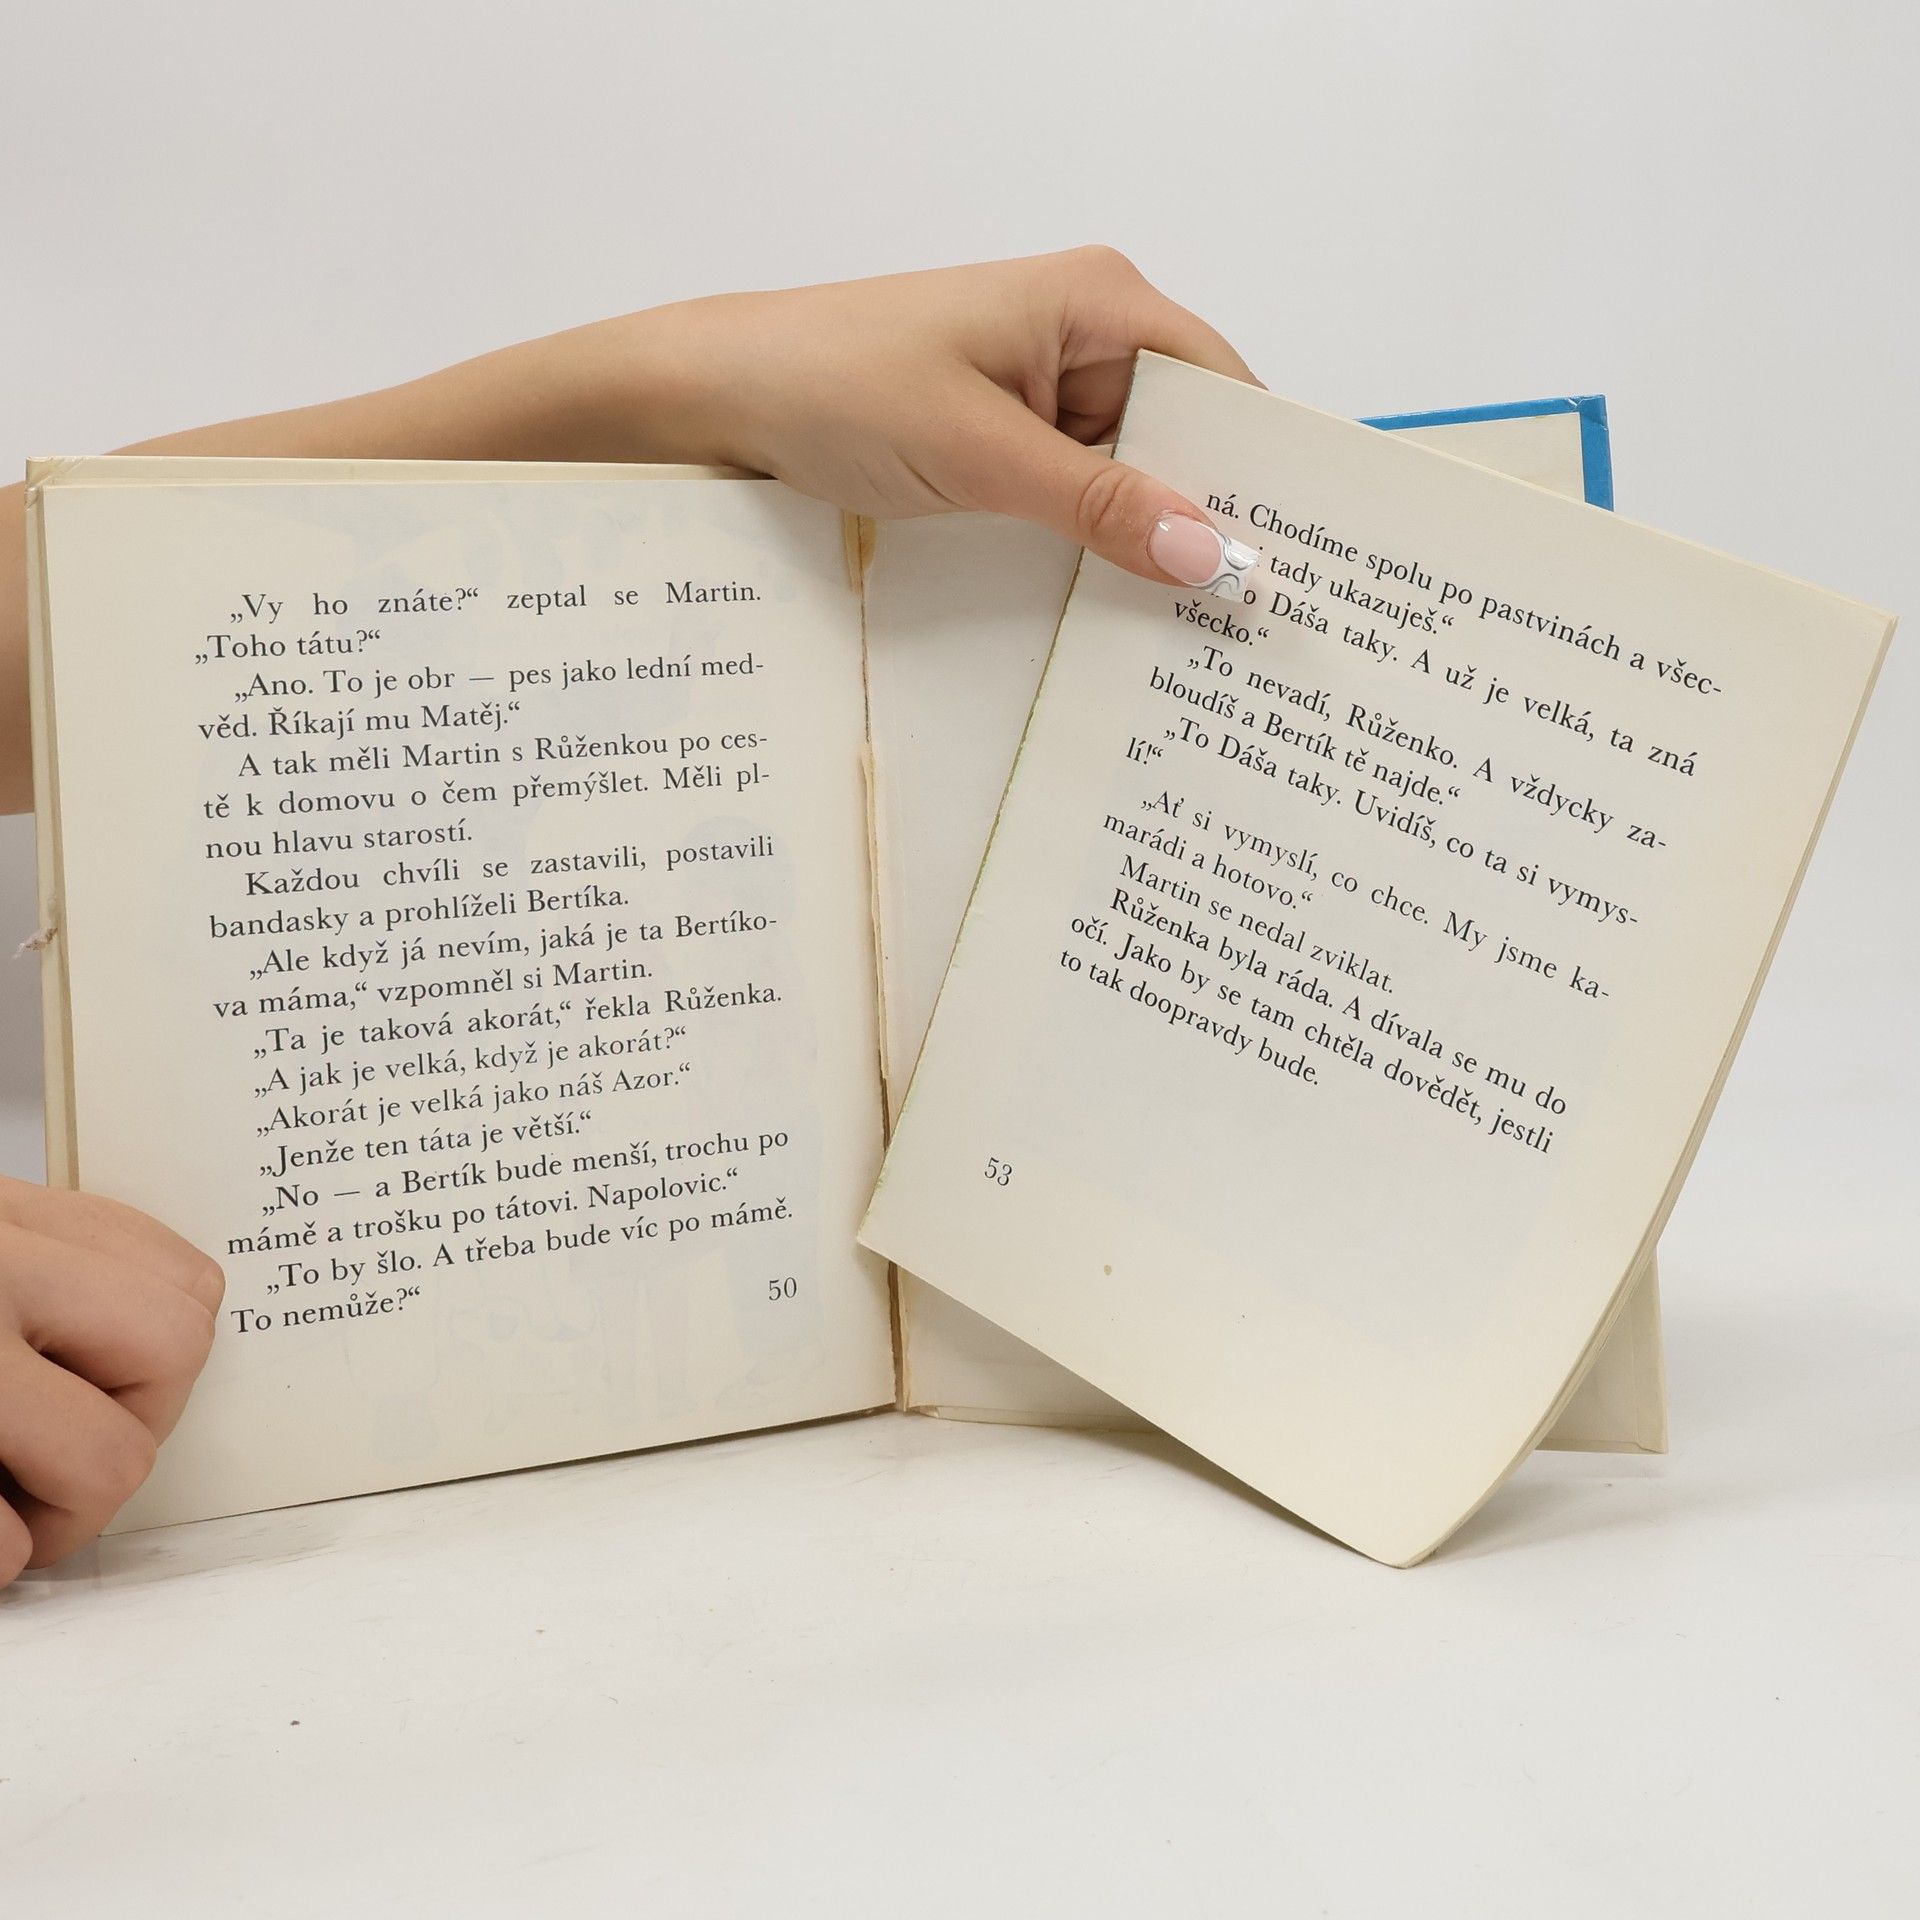 „Vy ho znáte?“ zeptal se Martin.
„Toho tátu?“
„Ano. To je obr — pes jako lední med-
věd. Říkají mu Matěj.“
A tak měli Martin s Růženkou po ces-
tě k domovu o čem přemýšlet. Měli pl-
nou hlavu starostí.
Každou chvíli se zastavili, postavili
bandasky a prohlíželi Bertíka.
„Ale když já nevím, jaká je ta Bertíko-
va máma,“ vzpomněl si Martin.
„Ta je taková akorát,“ řekla Růženka.
„A jak je velká, když je akorát?“
„Akorát je velká jako náš Azor.“
„Jenže ten táta je větší.“
„No — a Bertík bude menší, trochu po
mámě a trošku po tátovi. Napolovic.“
„To by šlo. A třeba bude víc po mámě.
To nemůže?“
50
ná. Chodíme spolu po pastvinách a všec-
tady ukazuješ.“
Dáša taky. A už je velká, ta zná
všecko.“
„To nevadí, Růženko. A vždycky za-
bloudíš a Bertík tě najde.“
„To Dáša taky. Uvidíš, co ta si vymys-
lí!“
„Ať si vymyslí, co chce. My jsme ka-
marádi a hotovo.“
Martin se nedal zviklat.
Růženka byla ráda. A dívala se mu do
očí. Jako by se tam chtěla dovědět, jestli
to tak doopravdy bude.
53